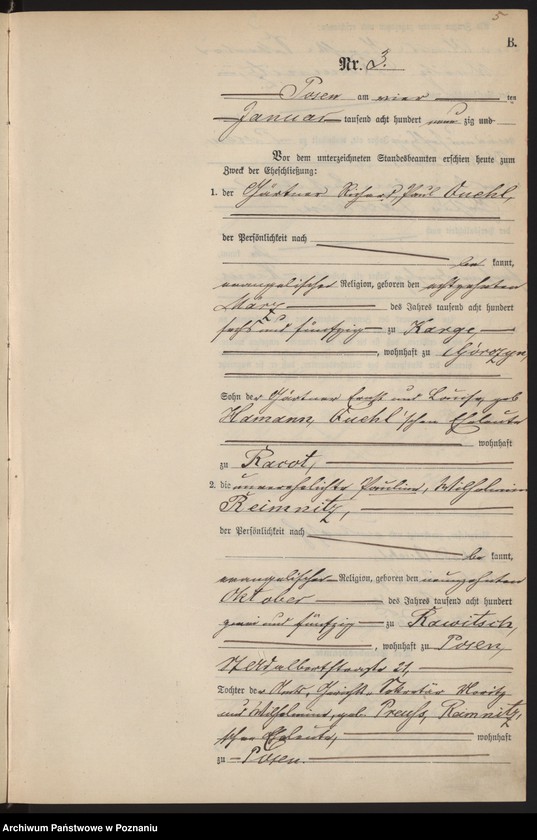 B.
Nr. 3.
Posen am vier ten
Januar tausend acht hundert neunzig und
Vor dem unterzeichneten Standesbeamten erschien heute zum
Zweck der Eheschließung:
1. der Gärtner Richard, Paul
der Persönlichkeit nach
be kannt,
evangelischer Religion, geboren den achtzehnten
März des Jahres tausend acht hundert
sechs und fünfzig zu Karge
, wohnhaft zu Górczyn,
Sohn der Gärtner Ernst und Louise, geb
Hamann, 'schen Eheleute
wohnhaft
zu Racot,
2. die unverehelichte Pauline, Wilhelmine
Reimnitz,
der Persönlichkeit nach
be kannt,
evangelischer Religion, geboren den neunzehnten
Oktober des Jahres tausend acht hundert
zwei und fünfzig zu Rawitsch,
, wohnhaft zu Posen,
St Adalbertstraße 21,
Tochter der Amts-Gerichts-Sekretär Moritz
und Wilhelmine, geb. Preuß, Reimnitz'
schen Eheleute, wohnhaft
zu Posen.
Archiwum Państwowe w Poznaniu